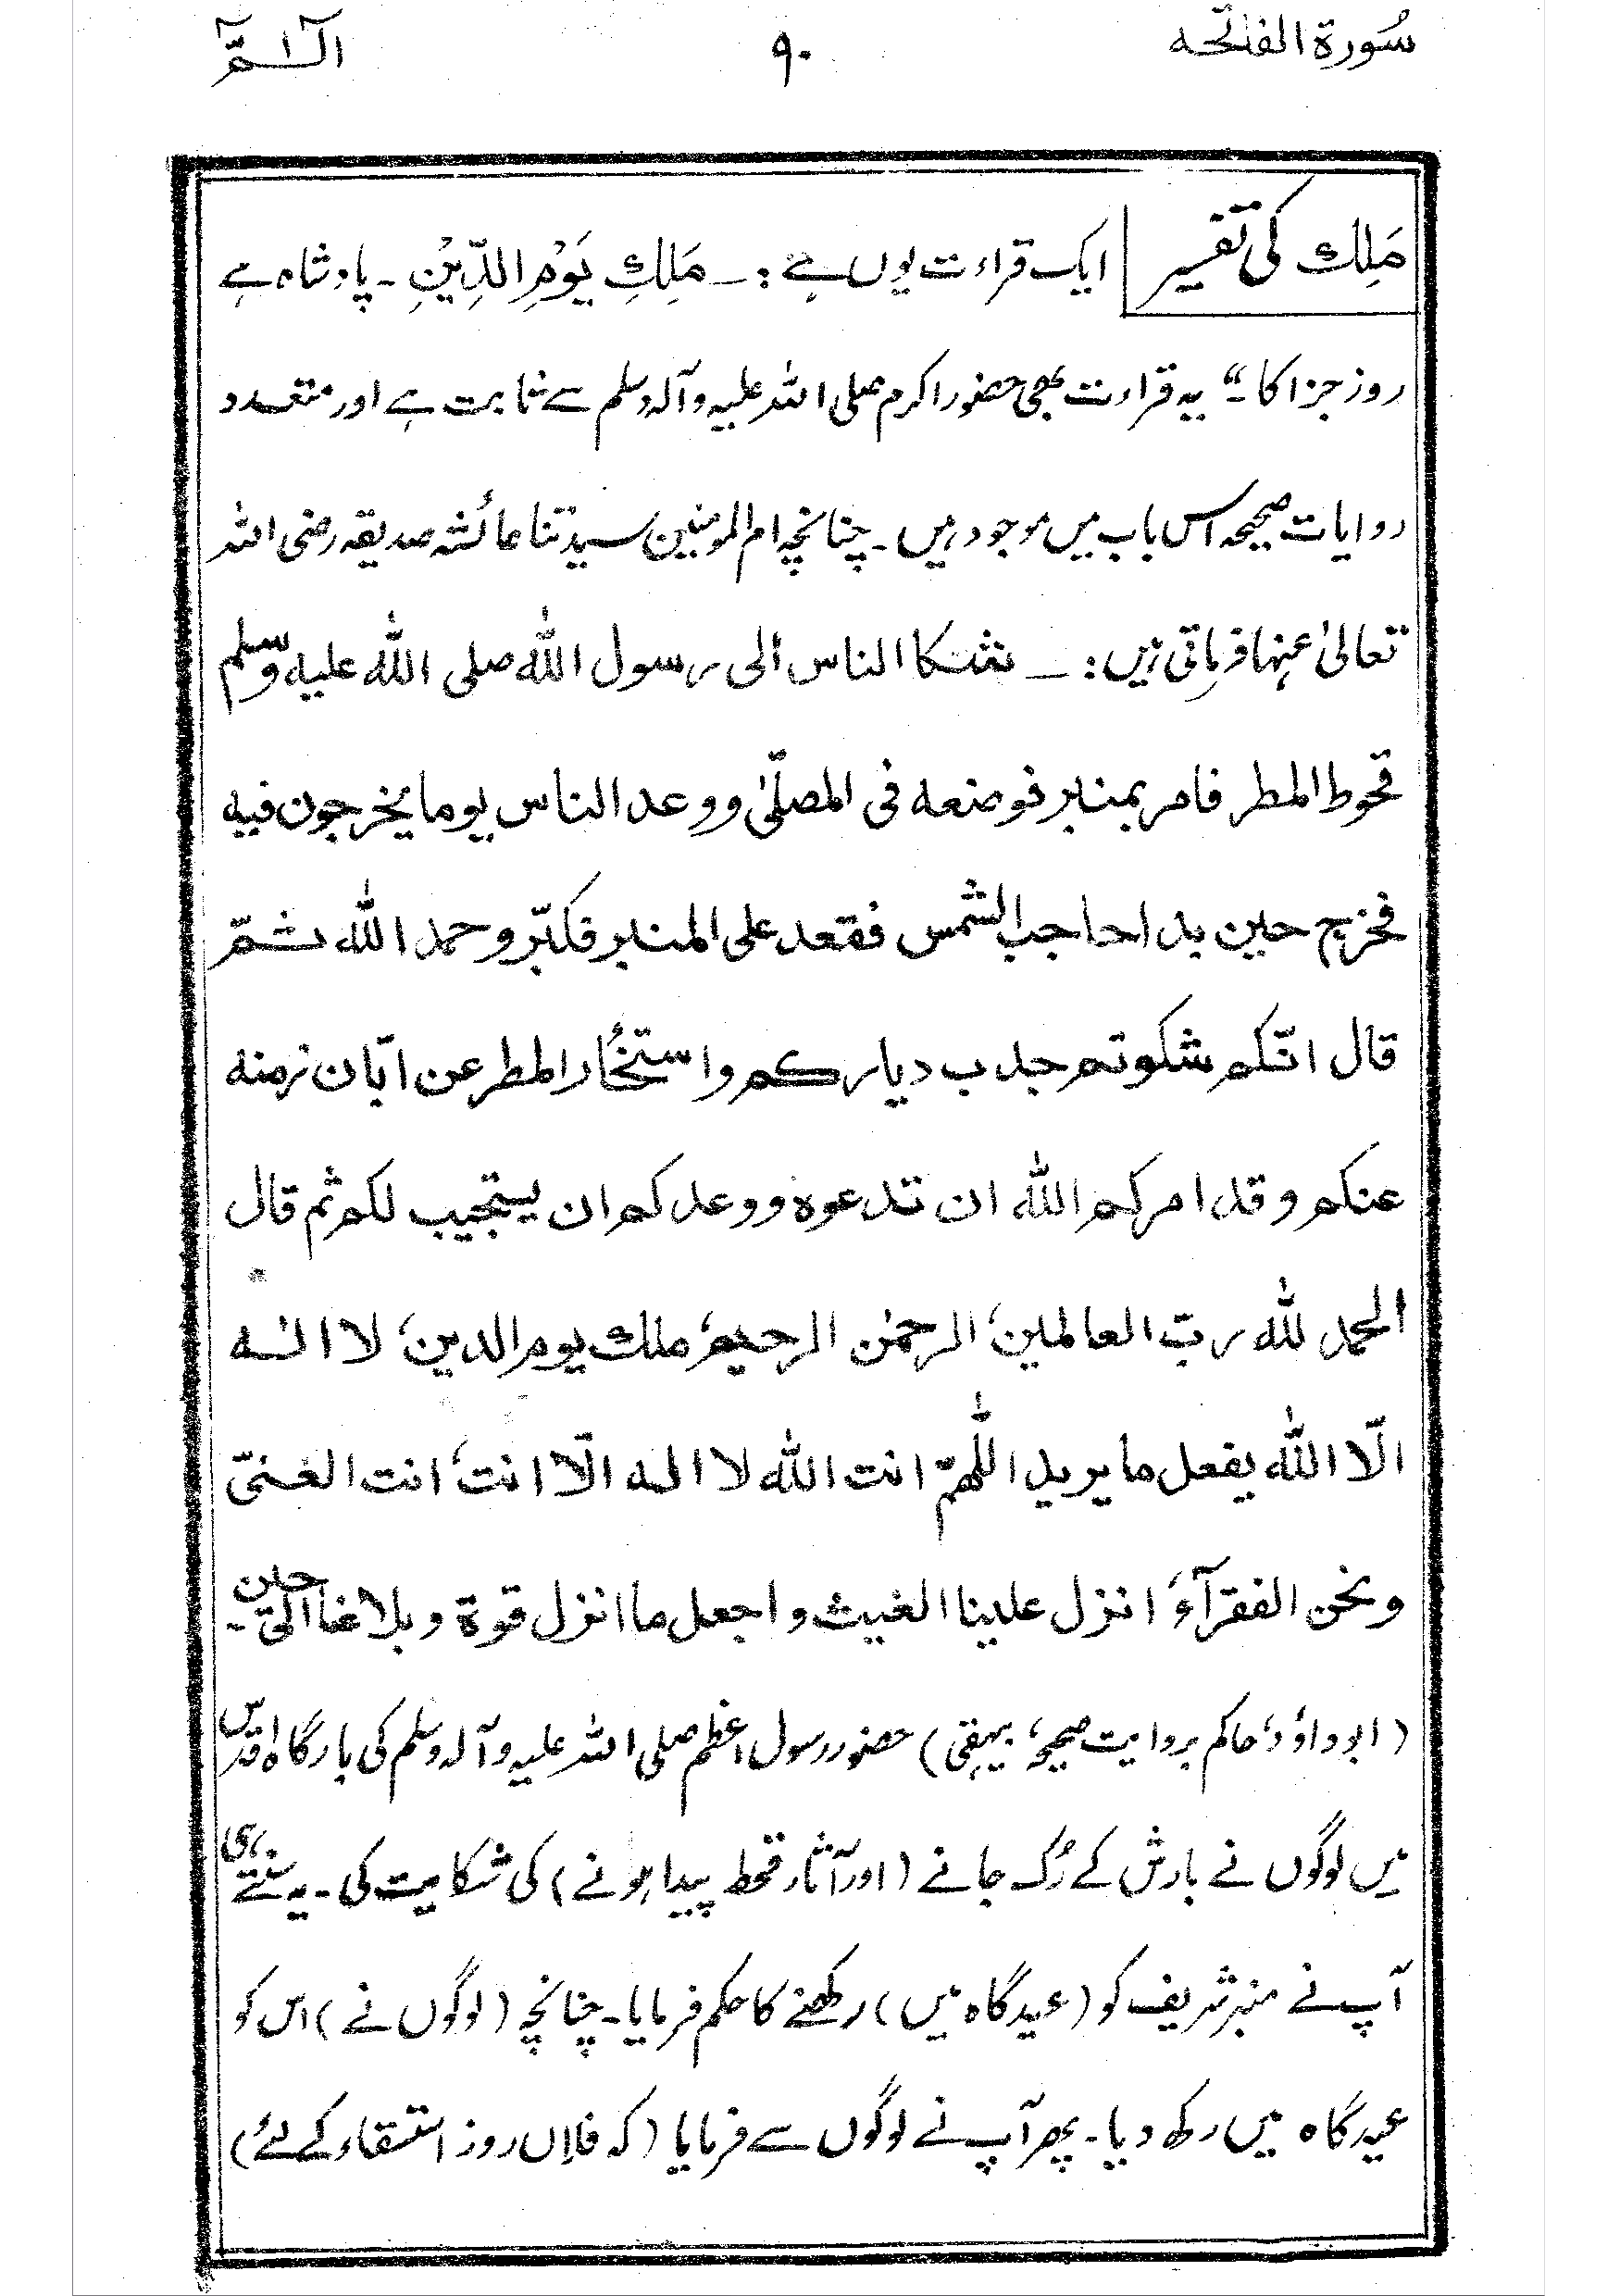 سُورة الفاتحه ۹۰ الٓـمّٓ ١
مَلِك کی تفسیر ایک قراءت یوں ہے :ــ مَلِكِ يَوْمِ الدِّيْنِ ۔ پادشاہ ہے
روز جزا کا ۔“ یہ قراءت بھی حضور اکرم صلی اللہ علیہ وآلہ وسلم سے ثابت ہے اور متعدد
روایات صحیحہ اس باب میں موجود ہیں ۔ چنانچہ ام المومنین سیدتنا عائشہ صدیقہ رضی اللہ
تعالیٰ عنہا فرماتی ہیں :ــ شكا الناس الى رسول الله صلى الله عليه وسلم
قحوط المطر فامر بمنبر فوضعه فى المصلّىٰ ووعد الناس يوما يخرجون فيه
فخرج حين بدا حاجب الشمس فقعد على المنبر فكبّر وحمد الله ثمّ
قال انّكم شكوتم جدب دياركم واستئخار المطر عن ابّان زمنه
عنكم وقد امركم الله ان تدعوه ووعدكم ان يستجيب لكم ثم قال
الحمد لله ربّ العالمين، الرحمٰن الرحيم، ملك يوم الدين، لا الٰه
الّا الله يفعل ما يريد اللّٰهمّ انت الله لا اله الّا انت، انت الغنىّ
ونحن الفقرآء، انزل علينا الغيث واجعل ما انزل قوة وبلاغا الى حين ۔
( ابوداؤد، حاکم بروایت صحیحہ، بیہقی ) حضور رسول اعظم صلی اللہ علیہ وآلہ وسلم کی بارگاہ اقدس
میں لوگوں نے بارش کے رُک جانے ( اور آثار قحط پیدا ہونے ) کی شکایت کی ۔ یہ سنتے ہی
آپ نے منبر شریف کو ( عیدگاہ میں ) رکھنے کا حکم فرمایا ۔ چنانچہ ( لوگوں نے ) اس کو
عیدگاہ میں رکھ دیا ۔ پھر آپ نے لوگوں سے فرمایا ( کہ فلاں روز استسقاء کے لئے )